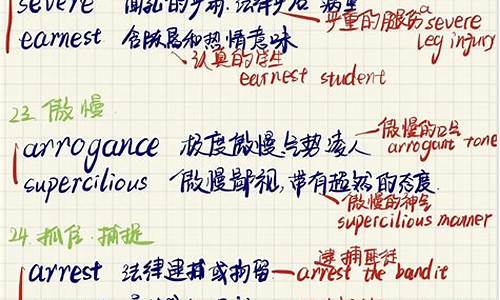 severe
严重的腿伤 a severe leg injury
earnest 含
和热情意味
认真的学生
earnest student
23 傲慢
arrogance 极度傲慢 气势凌人
傲慢的口气
arrogant tone
supercilious 傲慢鄙视, 带有超然的态度.
傲慢的神气
supercilious manner
24. 抓住. 捕捉
arrest 法律逮捕或拘留
逮捕匪徒
arrest the bandit